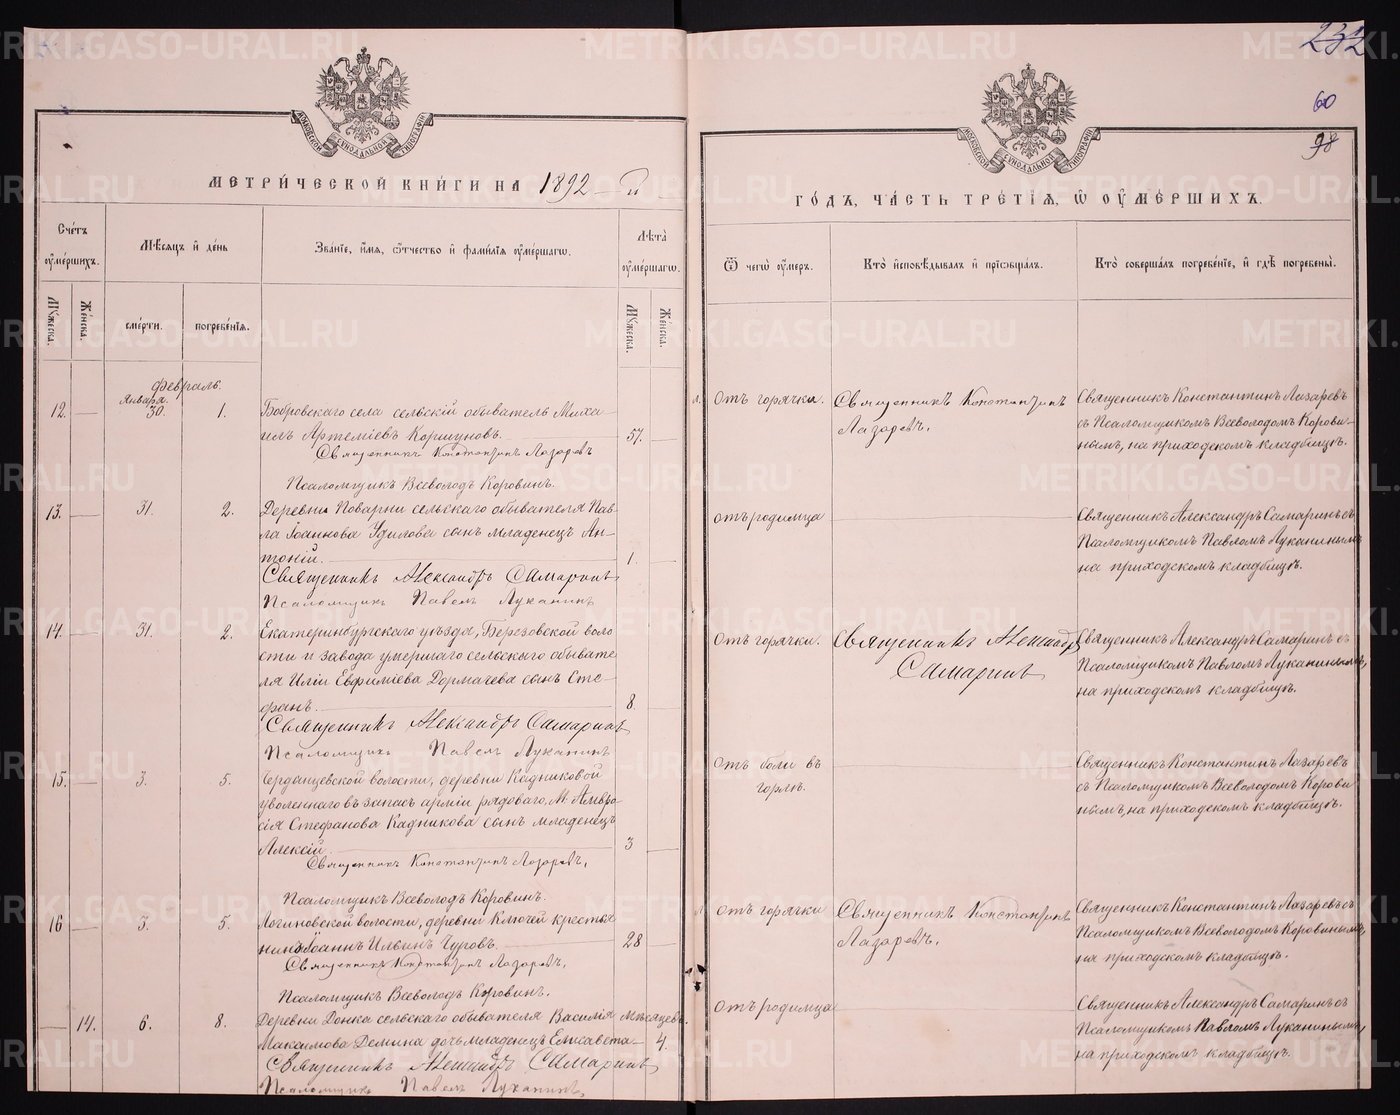 232
60
98
МОСКОВСКОЙ СѴНОДАЛЬНОЙ ТИПОГРАФІИ
МОСКОВСКОЙ СѴНОДАЛЬНОЙ ТИПОГРАФІИ
МЕТРИ́ЧЕСКОЙ КНИ́ГИ НА 1892-й
ГО́ДЪ, ЧА́СТЬ ТРЕ́ТІѦ, Ѡ҆ ОУ҆МЕ́РШИХЪ.
Сче́тъ оу҆ме́ршихъ.
Мꙋ́жеска.
Же́нска.
Мѣ́сѧцъ и҆ де́нь
сме́рти.
погребе́нїѧ.
Зва́нїе, и҆́мѧ, ѻ҆́тчество и҆ фами́лїѧ оу҆ме́ршагѡ.
Лѣ́та оу҆ме́ршагѡ.
Мꙋ́жеска.
Же́нска.
Ѿ чегѡ̀ оу҆́меръ.
Кто̀ и҆сповѣ́дывалъ и҆ прїѡбща́лъ.
Кто̀ соверша́лъ погребе́нїе, и҆ гдѣ̀ погребены̀.
Февраль.
12. Января 30. 1.
Бобровскаго села сельскій обыватель Миха-
илъ Артеміевъ Коршуновъ. 57.
Священникъ Константинъ Лазаревъ
Псаломщикъ Всеволодъ Коровинъ.
Отъ горячки.
Священникъ Константинъ
Лазаревъ.
Священникъ Константинъ Лазаревъ
съ Псаломщикомъ Всеволодомъ Корови-
нымъ, на приходскомъ кладбищѣ.
13. 31. 2.
Деревни Поварни сельскаго обывателя Пав-
ла Іоаннова Удилова сынъ младенецъ Ан-
тоній. 1.
Священникъ Александръ Самаринъ
Псаломщикъ Павелъ Луканинъ
отъ родимца
Священникъ Александръ Самаринъ съ
Псаломщикомъ Павломъ Луканинымъ
на приходскомъ кладбищѣ.
14. 31. 2.
Екатеринбургскаго уѣзда, Березовской воло
сти и завода умершаго сельскаго обывате
ля Иліи Евфиміева Дормачева сынъ Сте-
фанъ. 8
Священникъ Александръ Самаринъ
Псаломщикъ Павелъ Луканинъ
Отъ горячки.
Священникъ Александръ
Самаринъ
Священникъ Александръ Самаринъ съ
Псаломщикомъ Павломъ Луканинымъ,
на приходскомъ кладбищѣ.
15. 3. 5.
Черданцевской волости, деревни Кадниковой
уволеннаго въ запасъ арміи рядоваго, Амвро-
сія Стефанова Кадникова сынъ младенецъ
Алексій 3
Священникъ Константинъ Лазаревъ,
Псаломщикъ Всеволодъ Коровинъ.
Отъ боли въ
горлѣ.
Священникъ Константинъ Лазаревъ
съ Псаломщикомъ Всеволодомъ Корови
нымъ, на приходскомъ кладбищѣ.
16 3. 5.
Логиновской волости, деревни Ключей крестья
нинъ Іоаннъ Ильинъ Чуровъ. 28
Священникъ Константинъ Лазаревъ,
Псаломщикъ Всеволодъ Коровинъ.
отъ горячки
Священникъ Константинъ
Лазаревъ.
Священникъ Константинъ Лазаревъ съ
Псаломщикомъ Всеволодомъ Коровинымъ,
на приходскомъ кладбищѣ.
14. 6. 8.
Деревни Донка сельскаго обывателя Василія Мѣсяцевъ.
Максимова Демина дочь младенецъ Елисавета 4.
Священникъ Александръ Самаринъ
Псаломщикъ Павелъ Луканинъ,
Отъ родимца
Священникъ Александръ Самаринъ съ
Псаломщикомъ Павломъ Луканинымъ,
на приходскомъ кладбищѣ.
METRIKI.GASO-URAL.RU